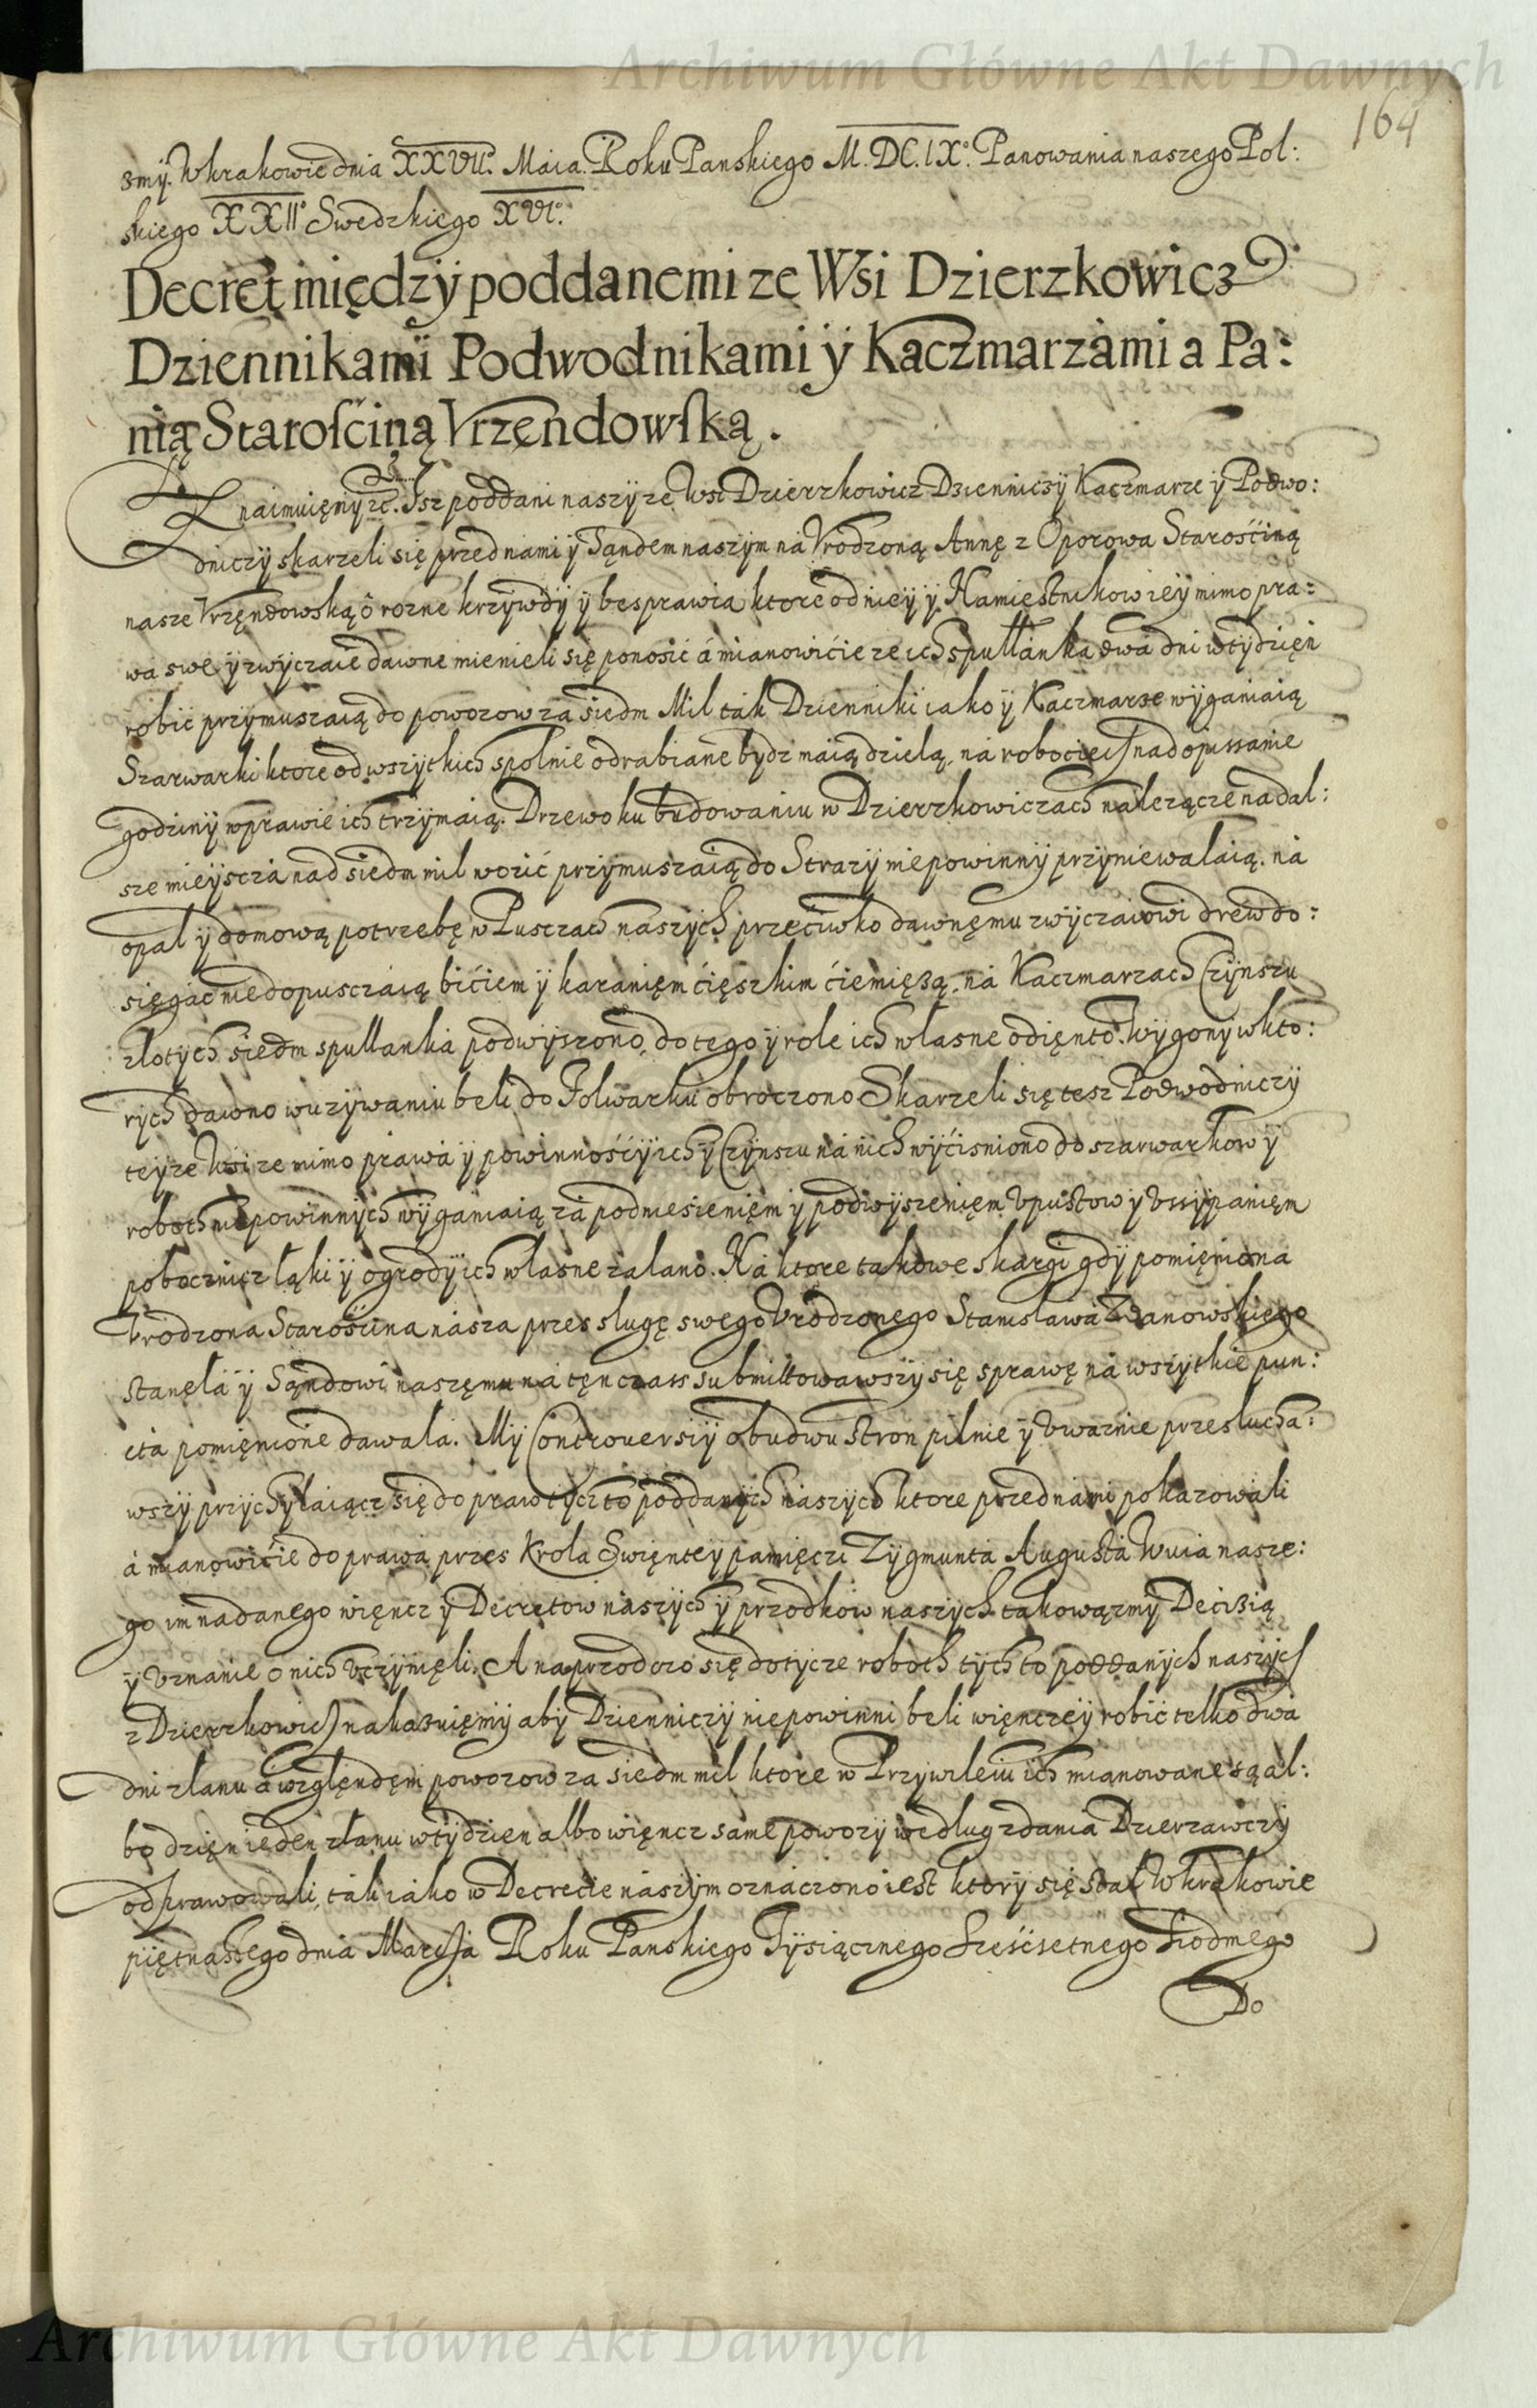 Archiwum Główne Akt Dawnych
164
zmy. W krakowie dnia XXVII. Maia Roku Panskiego M.DC.IX. Panowania naszego Pol:
skiego XXII Swedzkiego XVI.
Decret między poddanemi ze Wsi Dzierzkowicz
Dziennikami Podwodnikami y Kaczmarzami a Pa:
nią Starościną Vrzendowską.
Znaimuięmy etc. Isz poddani naszy ze Wsi Dzierzkowicz Dzienniczy Kaczmarze y Podwo:
dniczy skarzeli się przed nami y Sądem naszym na Vrodzoną Annę z Oporowa Starościną
nasze Vrzędowską o rozne krzywdy y besprawia ktore od niey y Namiestnikow iey mimo pra:
wa swe y zwyczaie dawne mienieli się ponosić á mianowićie ze ich spułłanka dwa dni w tydzięń
robić przymuszaią do powozow za siedm Mil tak Dzienniki iako y Kaczmarze wyganiaią
Szarwarki ktore od wszytkich spolnie odrabiane bydz maią dzielą, na robociech nad opissanie
godziny w prawie ich trzymaią. Drzewo ku budowaniu w Dzierzkowiczach należące na dal:
sze mieyscza nad siedm mil wozić przymuszaią do Strazy niepowinny przyniewalaią. na
opał y domową potrzebę w Pusczach naszych przećiwko dawnęmu zwyczaiowi drew do:
sięgać nie dopusczaią bićiem y karanięm ćięszkim ćiemięzą. na Kaczmarzach Czynszu
złotych siedm spułłanka podwyszono, do tego y role ich własne odięnto. Wygony w kto:
rych dawno w uzywaniu beli do Folwarku obroczono Skarzeli się tesz Podwodniczy
teyze Wsi ze mimo prawa y powinnośćy ich y Czynszu na nich wyćisniono do szarwarkow y
roboth niepowinnych wyganiaią za podniesienięm y podwyszenięm Vpustow y Vssypanięm
pobocznicz łąki y ogrody ich własne zalano. Na ktore takowe skargi gdy pomięniona
Vrodzona Starośćina nasza przes sługę swego Vrodzonego Stanisława Zdanowskiego
stanęła y Sądowi naszęmu na tęn czass submittowawszy się sprawę na wszytkie pun:
cta pomięnione dawała. My Controuersiy obudwu stron pilnie y Vwaznie przesłucha:
wszy przychylaiącz się do praw tychto poddanych naszych ktore przed nami pokazowali
á mianowićie do prawa przes Krola Swiętey pamięczi Zygmunta Augusta Wuia nasze:
go im nadanego więncz y Decretow naszych y przodkow naszych takowązmy Decizią
y Vznanie o nich Vczynięli. A naprzod czo się dotycze roboth tychto poddanych naszych
z Dzierzkowicz nakazuięmy aby Dzienniczy niepowinni beli więnczey robić telko dwa
dni złanu á względęm powozow za siedm mil ktore w Przywileiu ich mianowane są al:
bo dzięń ieden złanu w tydzien albo więncz same powozy według zdania Dzierzawczy
odprawowali, tak iako w Decrecie naszym oznaczono iest ktory się stał W krakowie
piętnastego dnia Marcza Roku Panskiego Tysiącznego Sześćsetnego Siodmego
Do
Archiwum Główne Akt Dawnych